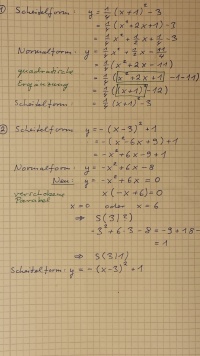 ① Scheitelform: y = 1/4 (x+1)² - 3
= 1/4 (x² + 2x + 1) - 3
= 1/4 x² + 1/2 x + 1/4 - 3
Normalform: y = 1/4 x² + 1/2 x - 11/4
= 1/4 (x² + 2x - 11)
quadratische = 1/4 (x² + 2x + 1 - 1 - 11)
Ergänzung = 1/4 ([(x+1)²] - 12)
Scheitelform: = 1/4 (x+1)² - 3
② Scheitelform y = -(x-3)² + 1
= -(x² - 6x + 9) + 1
= -x² + 6x - 9 + 1
Normalform: y = -x² + 6x - 8
Neu: y = -x² + 6x = 0
verschobene x(-x+6) = 0
Parabel
x = 0 oder x = 6
⇒ S(3|?)
-3² + 6·3 - 8 = -9 + 18 -
= 1
⇒ S(3|1)
Scheitelform: y = -(x-3)² + 1